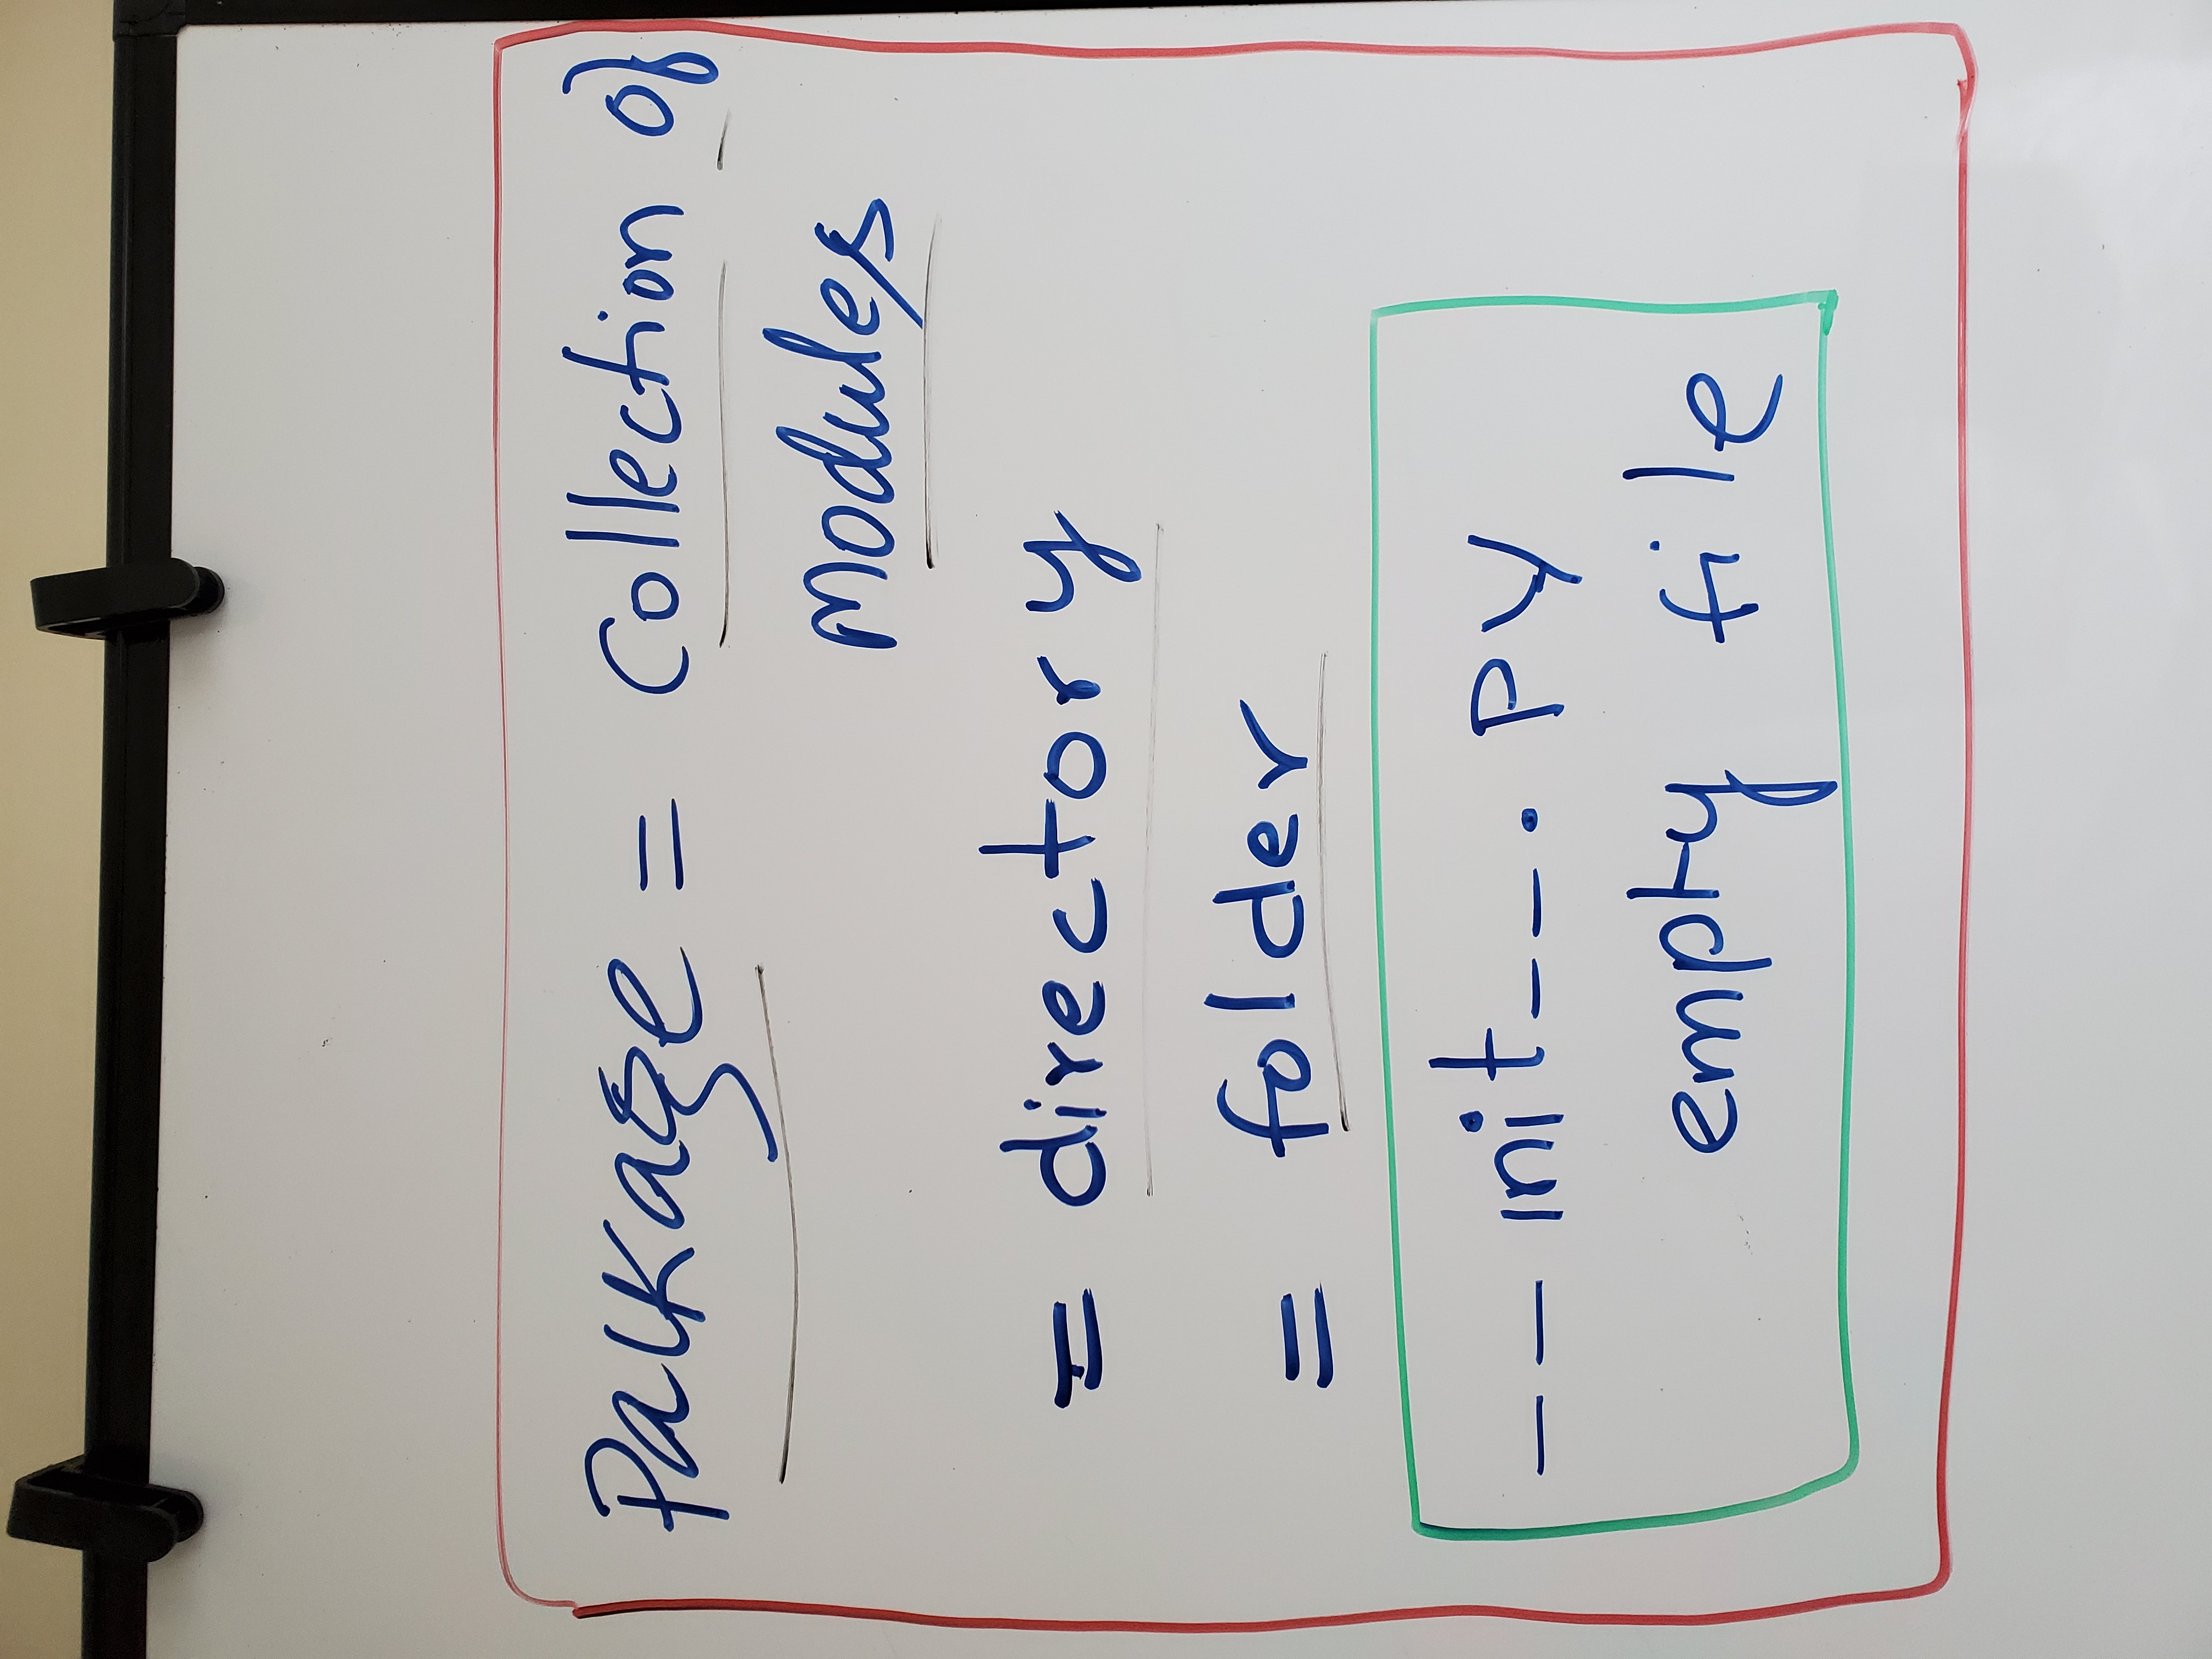 Package = Collection of
Modules
= directory
= folder
__init__.PY
empty file